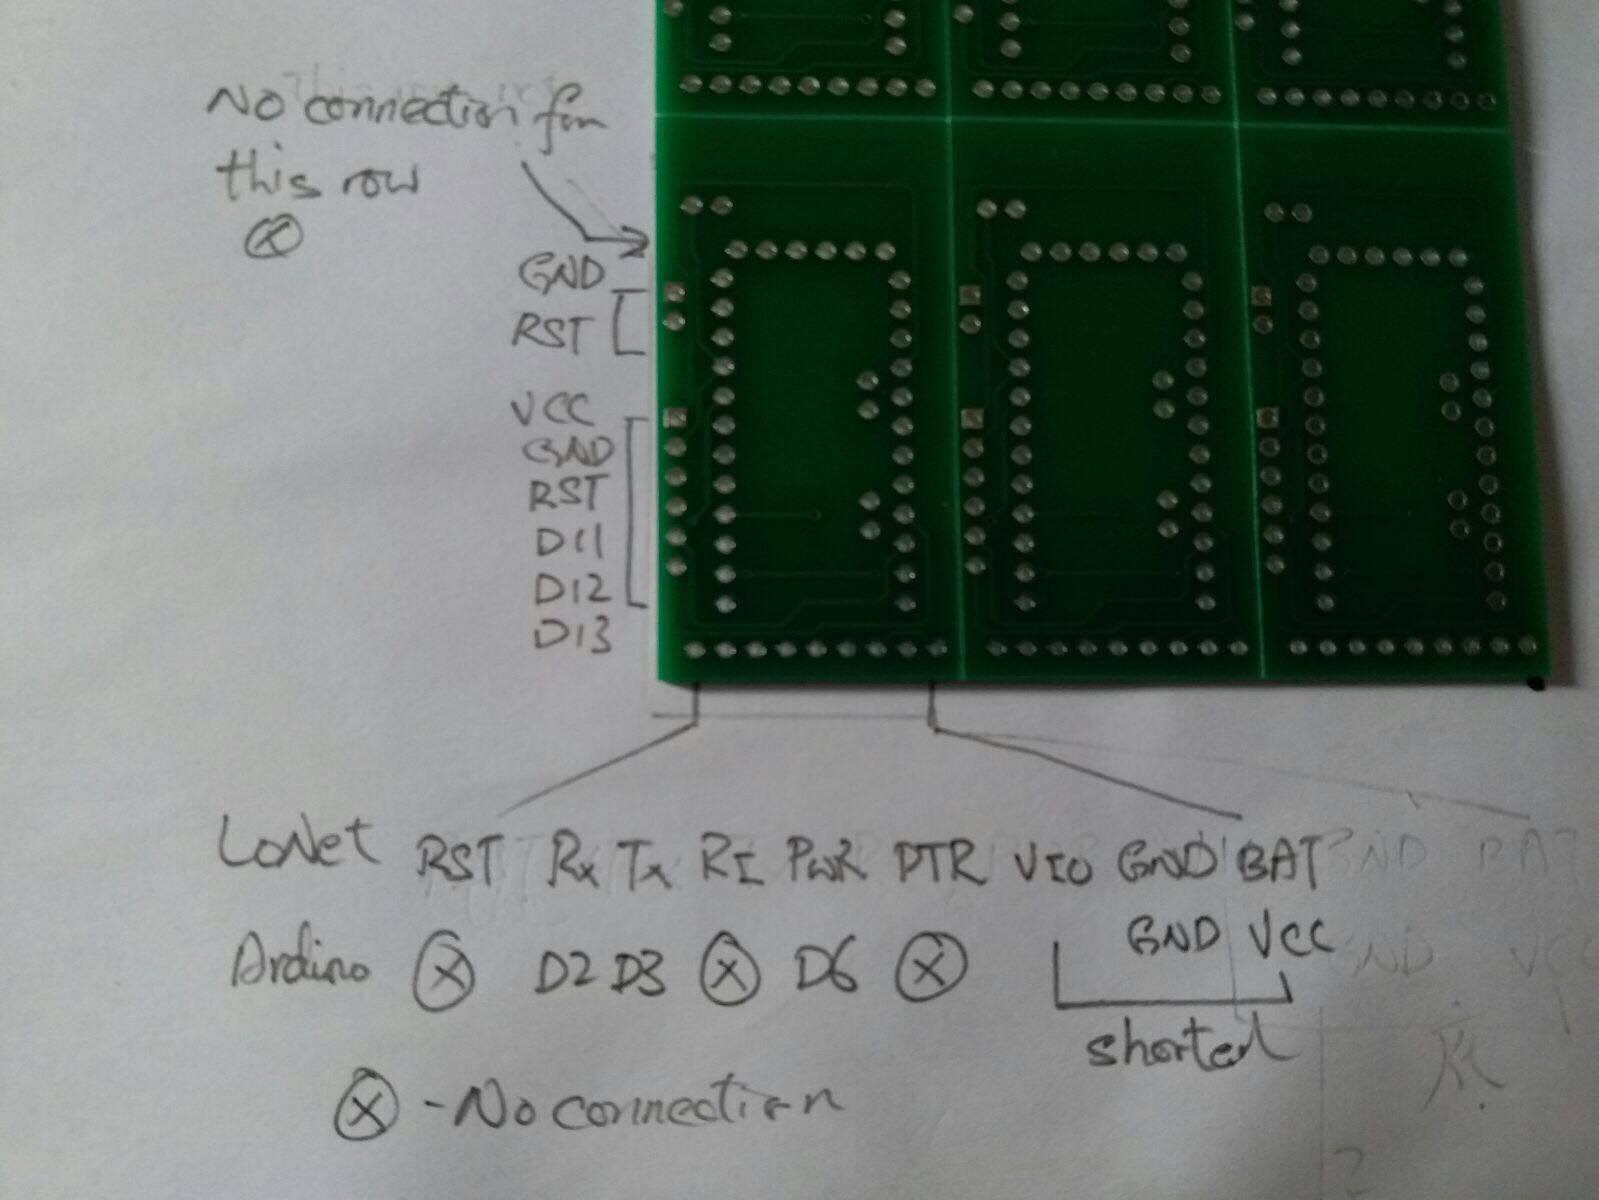 No connection for
this row
⊗
GND
RST
VCC
GND
RST
D11
D12
D13
LoNet RST Rx Tx RI PWR DTR VIO GND BAT
Ardino ⊗ D2 D3 ⊗ D6 ⊗ GND VCC
shorted
⊗ - No connection
GND BAT
GND VCC